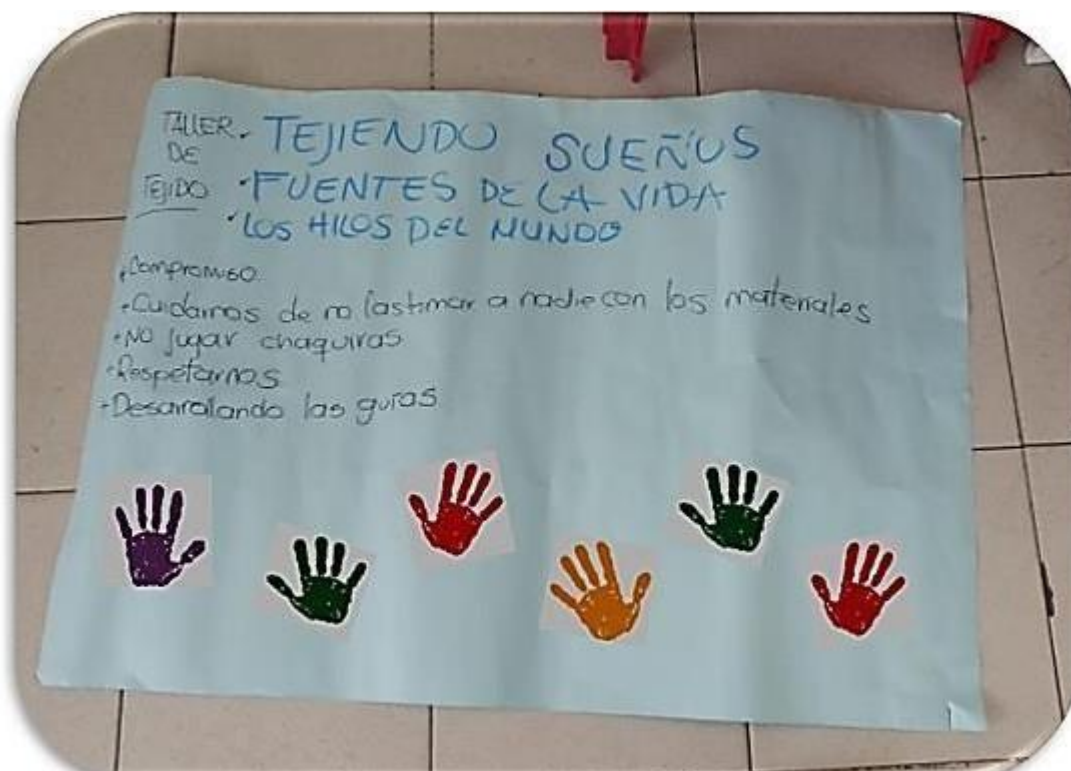 TALLER
DE
TEJIDO
· TEJIENDO SUEÑOS
· FUENTES DE LA VIDA
· LOS HILOS DEL MUNDO
· Compromiso
· Cuidarnos de no lastimar a nadie con los materiales
· NO jugar chaquiras
· Respetarnos
- Desarrollando las guias